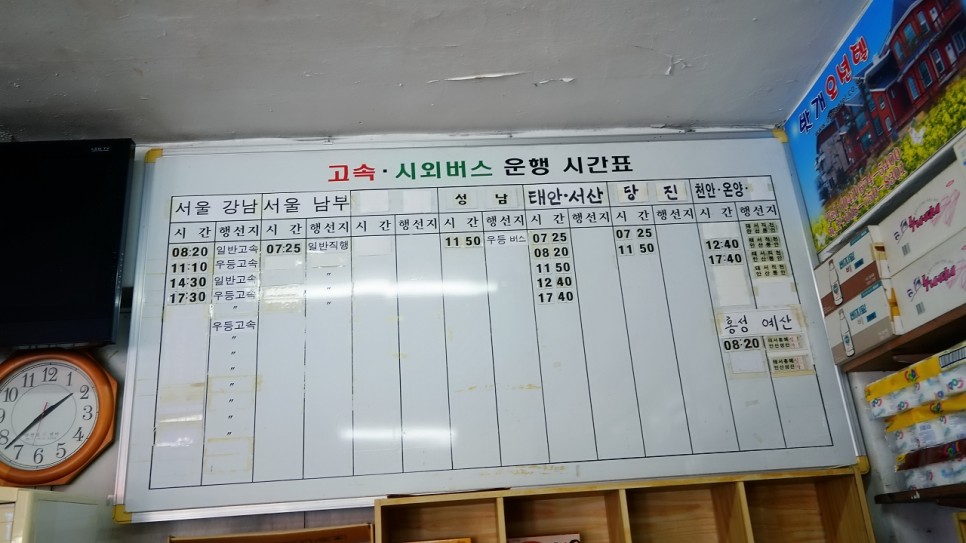 고속·시외버스 운행 시간표
서울 강남 서울 남부 성 남 태안·서산 당 진 천안·온양·
시 간 행선지 시 간 행선지 시 간 행선지 시 간 행선지 시 간 행선지 시 간 행선지 시 간 행선지
08:20 일반고속 07:25 일반직행 11 50 우등 버스 07 25 07 25
11:10 우등고속 〃 08 20 11 50 12:40
14:30 일반고속 〃 11 50 17:40
17:30 우등고속 〃 12 40
〃 17 40
우등고속 홍성 예산
〃 08:20
〃
〃
〃
〃
〃
〃
반개오년텔
12 1 2 3 4 5 6 7 8 9 10 11